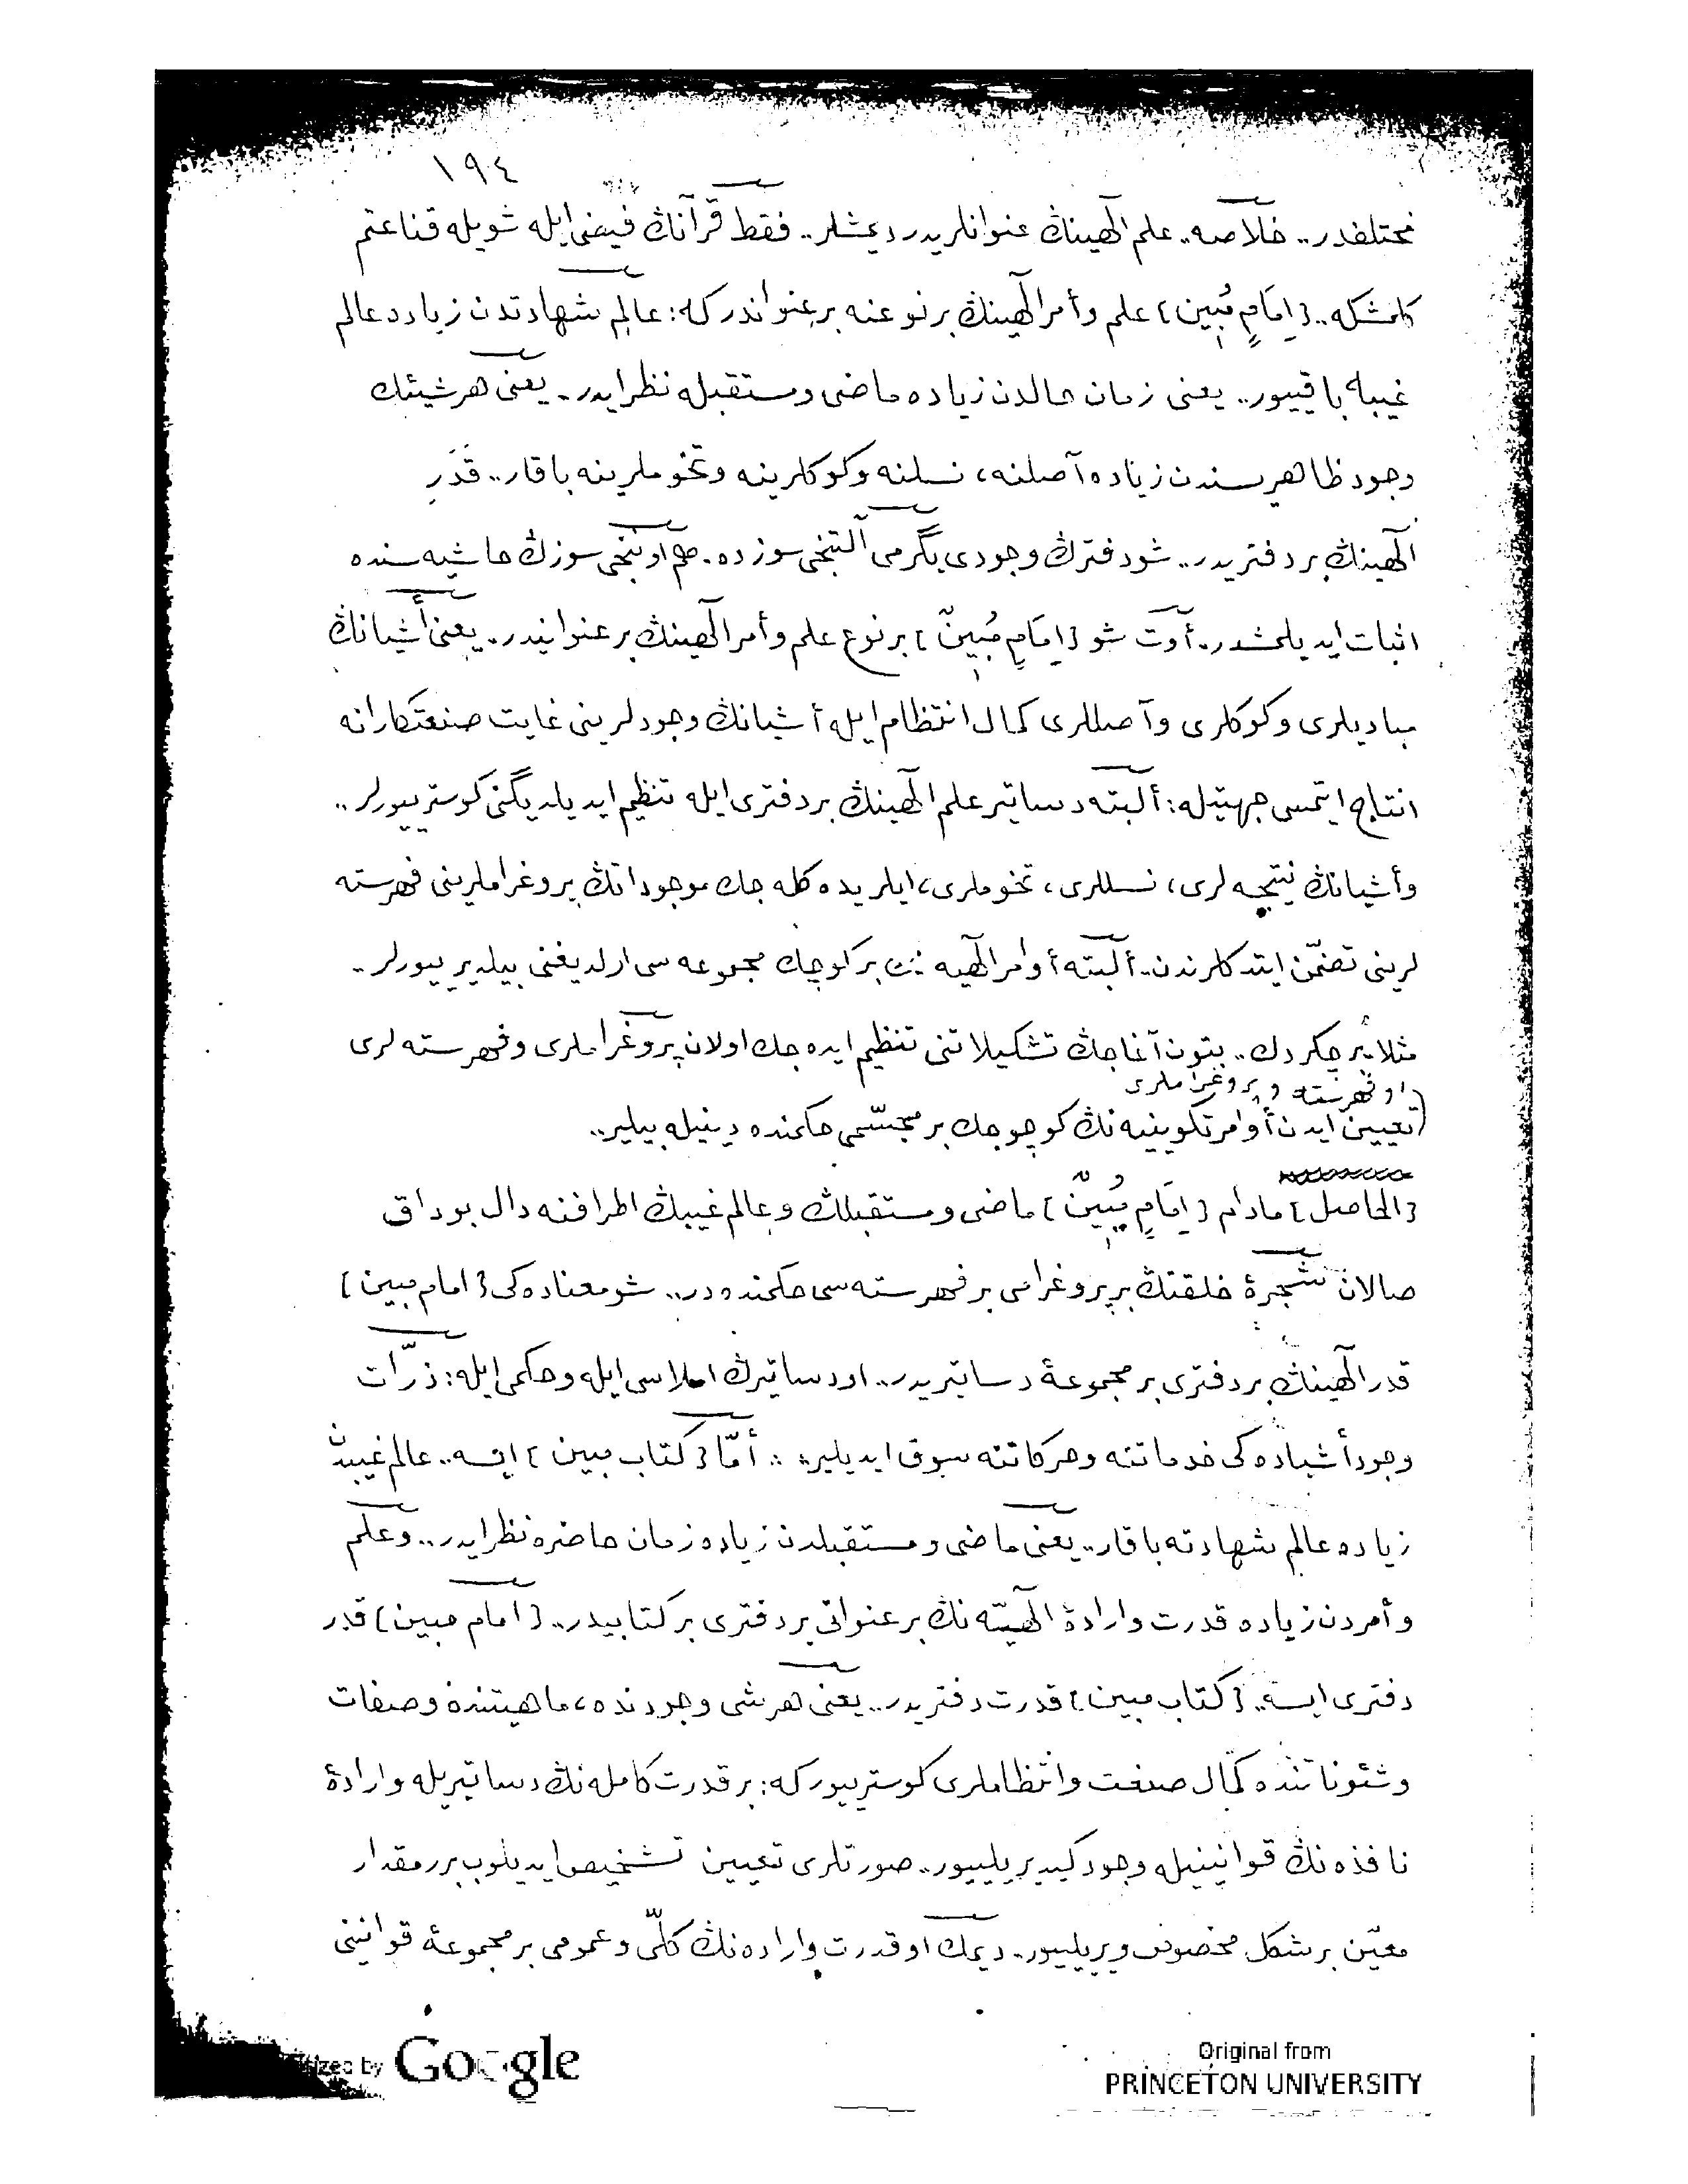 ١٩٤
مختلفدر.. خلاصه.. علم الٓهينڭ عنوانلريدر ديمشلر.. فقط قرآنڭ فيضى ايله شويله قناعتم
كلمشكه.. {اِمَامٍ مُبِين} علم وأمر الٓهينڭ برنوعنه برعنواندركه: عالم شهادتدن زياده عالم
غيبه باقييور.. يعنى زمان حالدن زياده ماضى ومستقبله نظر ايدر.. يعنى هر شيئڭ
وجود ظاهريسندن زياده آصلنه، نسلنه وكوكلرينه وتخوملرينه باقار.. قَدَرِ
الٓهينڭ بر دفتريدر.. شو دفترڭ وجودى يگرمى آلتنجى سوزده. هم اوننجى سوزڭ حاشيه سنده
اثبات ايديلمشدر. أوت شو {اِمَامٍ مُبِينٌ} برنوع علم وأمر الٓهينڭ برعنوانيدر. يعنى أشيانڭ
مباديلرى وكوكلرى وآصللرى كمال انتظام ايله أشيانڭ وجودلرينى غايت صنعتكارانه
انتاج ايتمسى جهتيله: ألبته دساتير علم الٓهينڭ بر دفترى ايله تنظيم ايديلديگنى كوسترييورلر..
وأشيانڭ نتيجه لرى، نسللرى، تخوملرى، ايلريده كله جك موجوداتڭ پروغراملرينى فهرسته
لرينى تضمّن ايتدكلرندن.. ألبته أوامر الٓهيه نڭ بر كوچك مجموعه سى اولديغنى بيلديرييورلر..
مثلا بر چكردك.. بتون آغاجڭ تشكيلاتنى تنظيم ايده جك اولان پروغراملرى وفهرسته لرى
او فهرسته و پروغراملرى
(تعيين ايدن أوامر تكوينيه نڭ كوچوجك بر مجسّمى حكمنده دينيله بيلير..
{الحاصل} مادام {اِمَامٍ مُبِينٌ} ماضى ومستقبلڭ وعالم غيبڭ اطرافنه دال بوداق
صالان شجرۀ خلقتڭ بر پروغرامى بر فهرسته سى حكمنده در.. شو معناده كى {امام مبين}
قدر الٓهينڭ بر دفترى بر مجموعۀ دساتيريدر.. او دساتيرڭ املاسى ايله وحكمى ايله: ذرّات
وجود أشياده كى خدماتنه وحركاتنه سوق ايديلير. أمّا {كتاب مبين} ايسه.. عالم غيبدن
زياده عالم شهادته باقار.. يعنى ماضى ومستقبلدن زياده زمان حاضره نظر ايدر.. وعلم
وأمردن زياده قدرت وارادۀ الٓهيّه نڭ برعنوانى بر دفترى بر كتابيدر.. {امام مبين} قدر
دفترى ايسه.. {كتاب مبين} قدرت دفتريدر.. يعنى هر شى وجودنده، ماهيتنده وصفات
وشئوناتنده كمال صنعت وانتظاملرى كوسترييوركه: بر قدرت كامله نڭ دساتيريله وارادۀ
نافذه نڭ قوانينيله وجود كيديريلييور.. صورتلرى تعيين تشخيص ايديلوب برر مقدار
معيّن بر شكل مخصوص ويريلييور. ديمك او قدرت واراده نڭ كلّى وعمومى بر مجموعۀ قوانينى
Google
Original from
PRINCETON UNIVERSITY